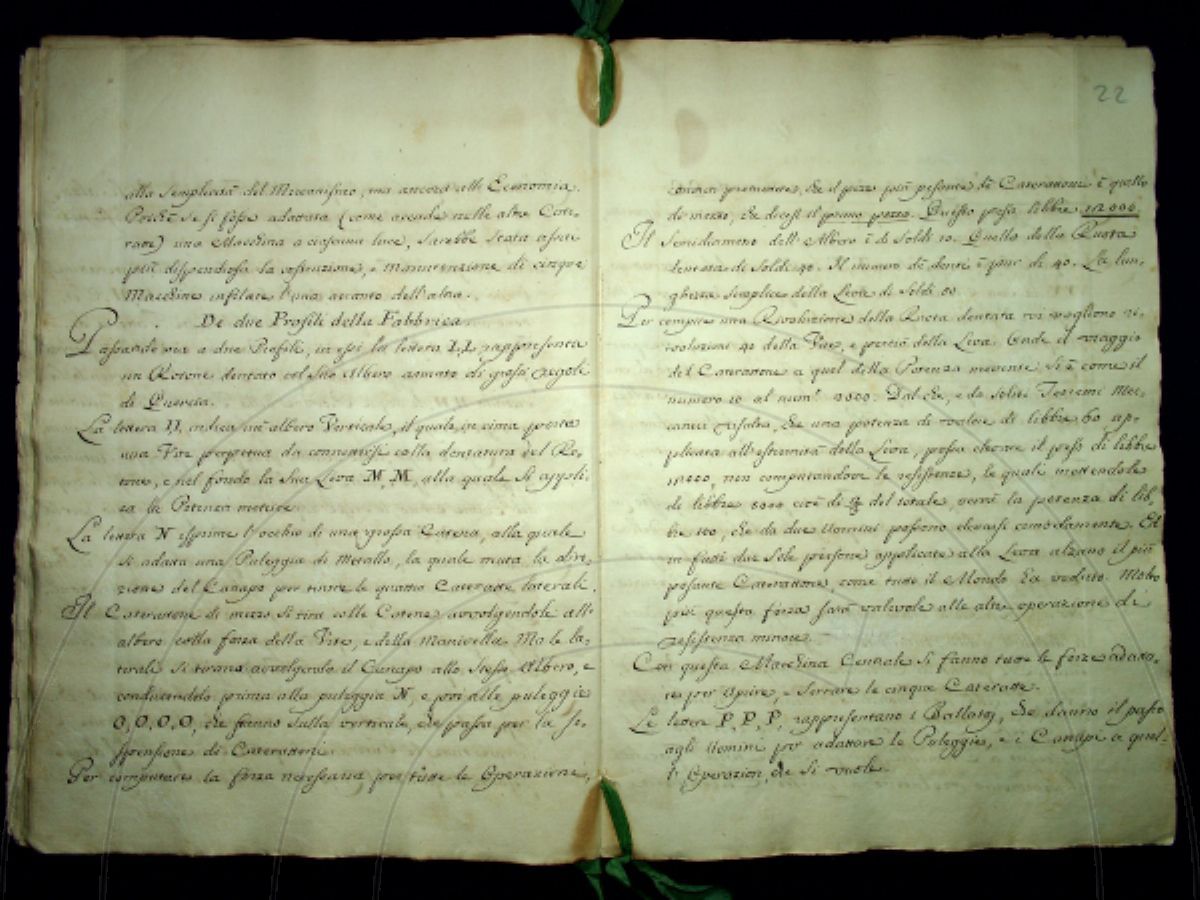 alla semplicità del Meccanismo, ma ancora alla Economia.
Poichè se si fosse adattata (come accade nelle altre Cate-
ratte) una Macchina a ciascuna luce, sarebbe stata assai
più dispendiosa la costruzione, e manutenzione di cinque
Macchine infilate l'una accanto dell'altra.
De due Profili della Fabbrica.
Passando ora a due Profili, in essi la lettera I,I, rappresenta
un Rotone dentato col suo Albero armato di grossi regoli
di Quercia.
La lettera indica un'albero Verticale, il quale in cima porta
una Vite perpetua da connettersi colla dentatura del Ro-
tone, e nel fondo la sua Leva M, M, alla quale si appli-
ca la Potenza motrice.
La lettera N esprime l'occhio di una grossa Catena, alla quale
si adatta una Puleggia di Metallo, la quale muta la dire-
zione del Canapo per tirare le quattro Cateratte laterali.
Il Caterattone di mezzo si tira colle Catene avvolgendole all'
albero colla forza della Vite, e della manivella. Ma le la-
terali si tirano avvolgendo il Canapo allo stesso Albero, e
conducendolo prima alla puleggia N, e poi alle puleggie
O, O, O, O, che stanno sulla verticale, che passa per la so-
spensione di Caterattoni.
Per computare la forza necessaria per tutte le Operazione,
22
premettere, che il pezzo più pesante de Caterattone è quello
di mezzo, che dicesi il primo pezzo. Questo pesa libbre 12000
Il Semidiametro dell'Albero è di Soldi 10. Quello della Ruota
dentata di Soldi 40. Il numero de denti è pur di 40. La lun-
ghezza semplice della Leva di Soldi 50
Per compire una Rivoluzione della Ruota dentata vi vogliono ri-
voluzioni 40 della Vite, e perciò della Leva. Onde il viaggio
del Caterattone a quel della Potenza movente si è come il
numero 10 al num.º 2000. Dal che, e da soliti Teoremi Mec-
canici risulta, che una potenza di valore di libbre 60 ap-
plicata all'estremità della Leva, possa elevare il peso di libbre
12000, non computandovi le resistenze, le quali mettendole
di libbre cioè di del totale verrà la potenza di lib-
bre che da due Uomini possono elevarsi comodamente. Ed
in fatti due sole persone applicate alla Leva alzano il più
pesante Caterattone, come tutto il Mondo ha veduto. Molto
più questa forza sarà valevole alle altre operazione di
resistenza minore.
Con questa Macchina Centrale si fanno tutte le forze adatta-
te per aprire, e serrare le cinque Cateratte.
Le lettere P, P, P, rappresentano i Ballatoj, che danno il passo
agli Uomini per adattare le Puleggie, e i Canapi a qual-
l'Operazion, che si vuole.